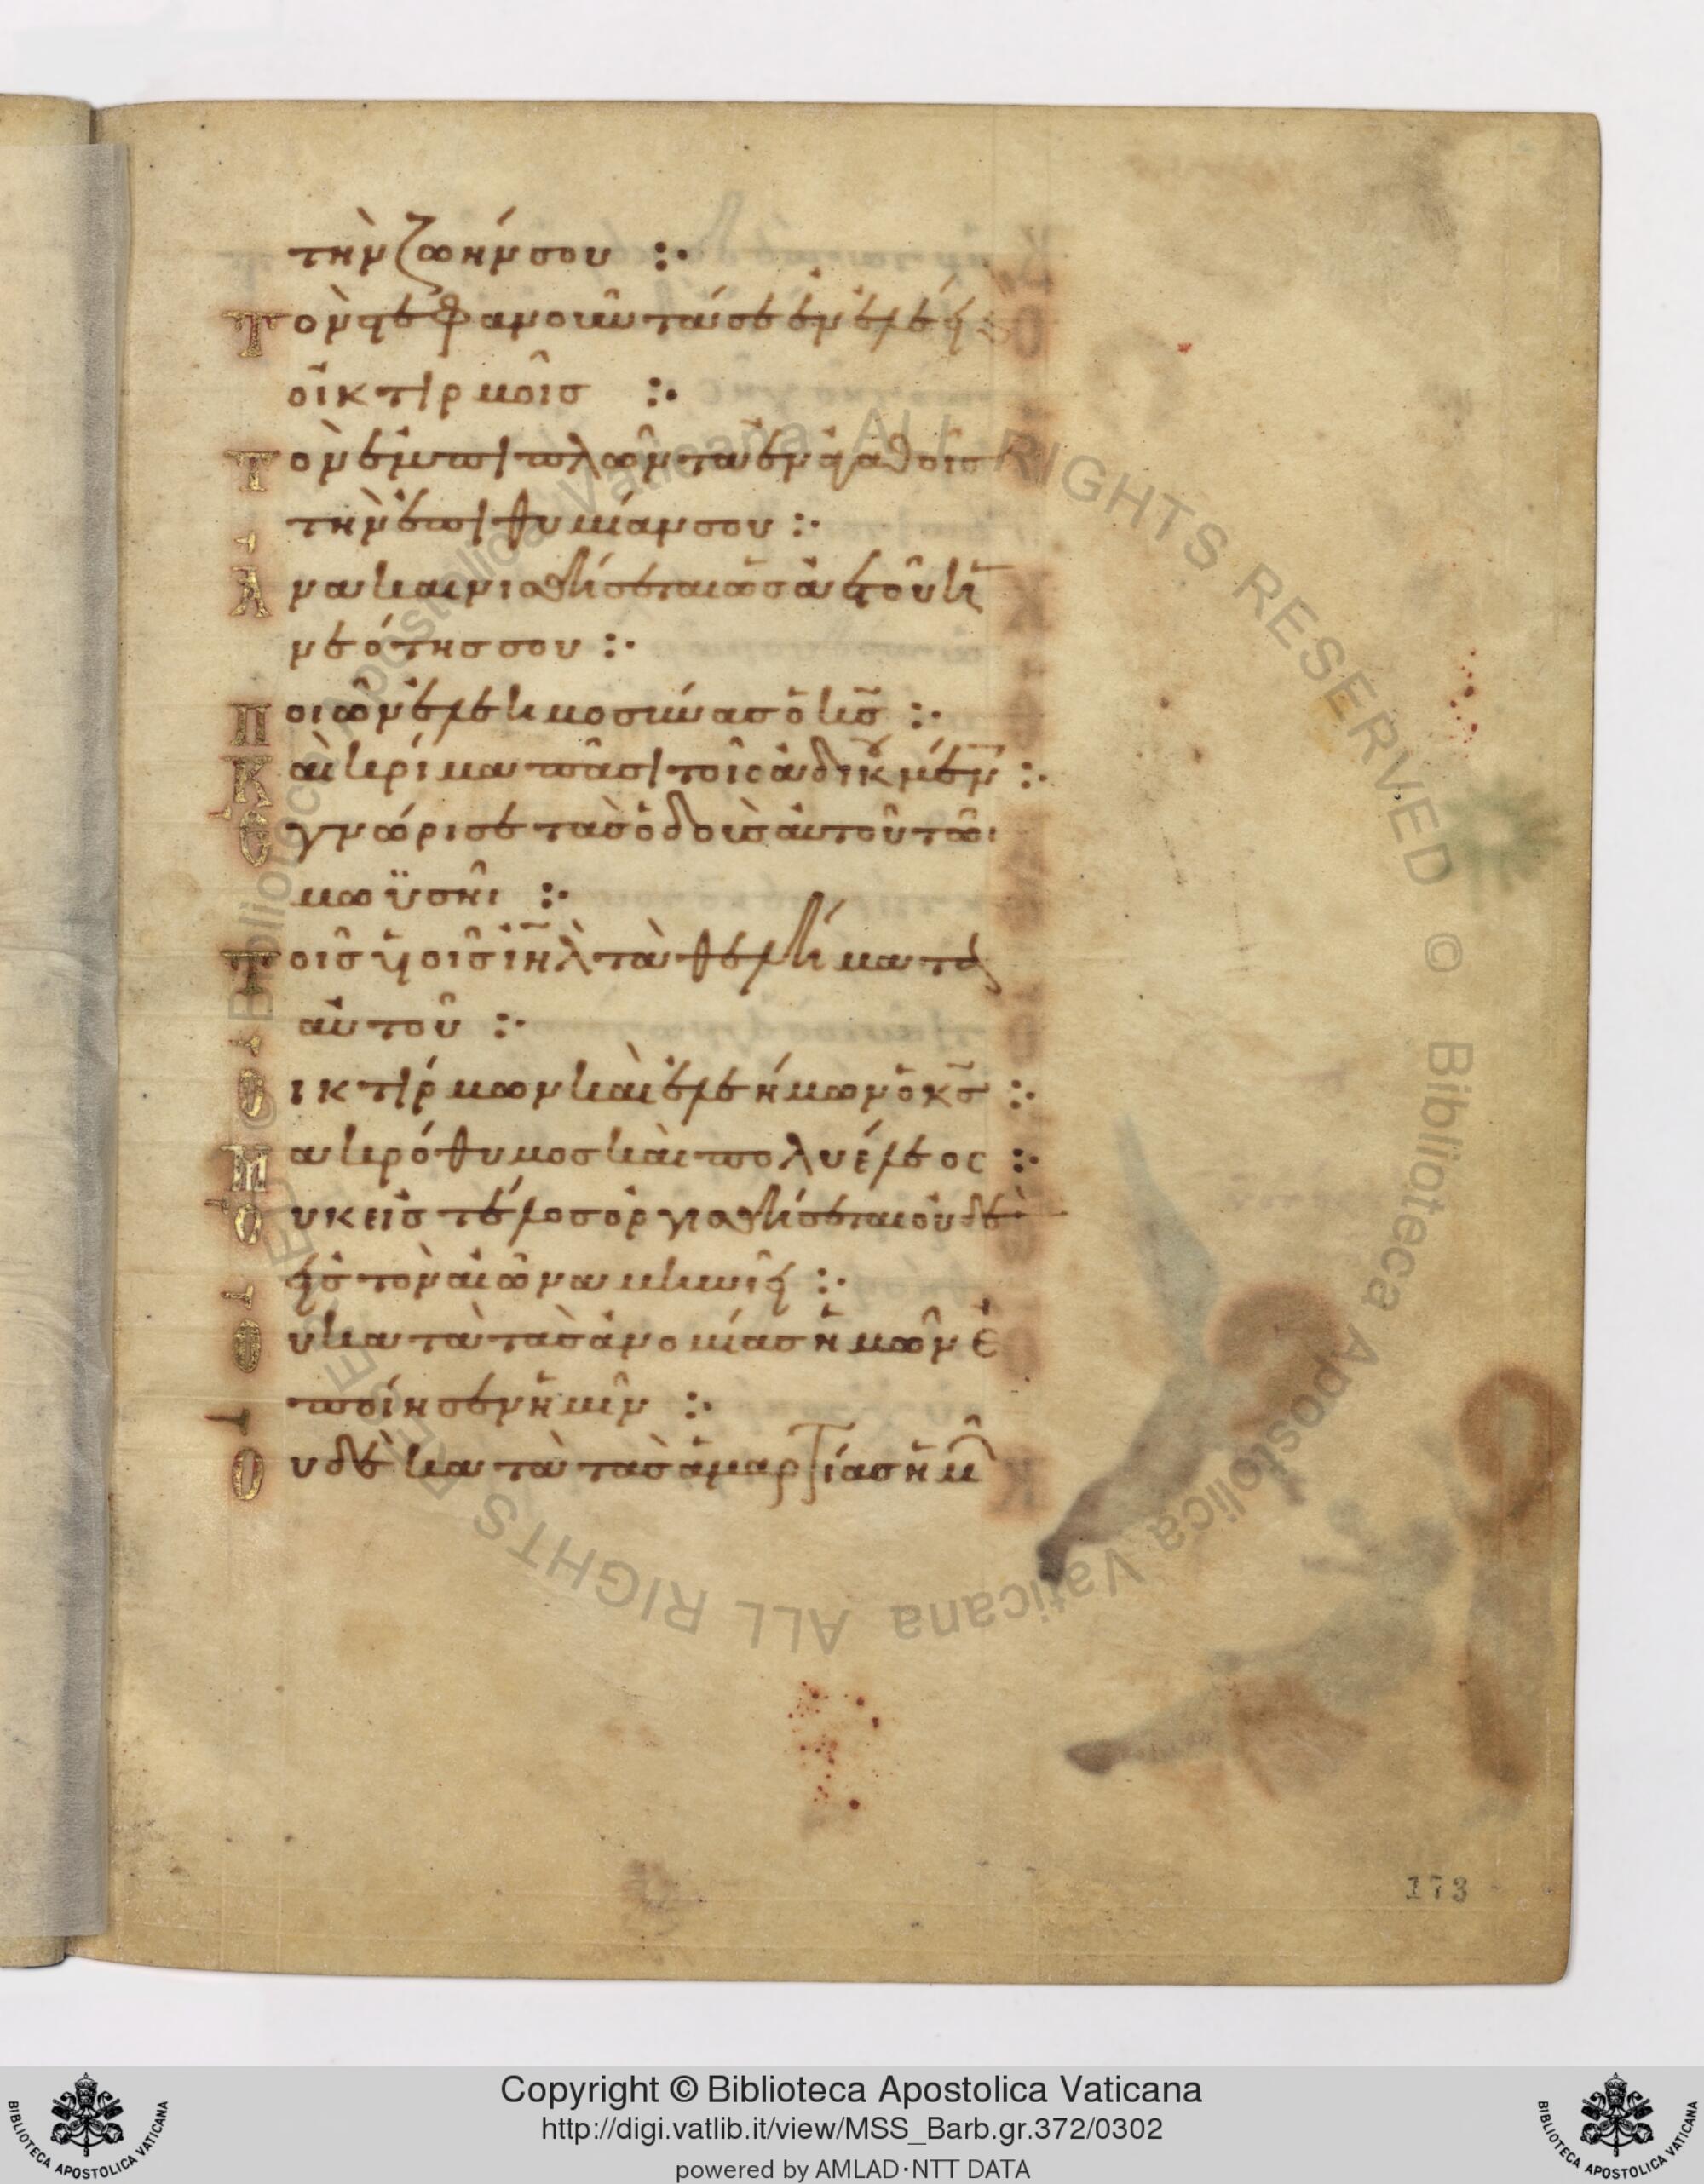 τὴν ζωήν σου :·
Τὸν στεφανοῦντά σε ἐν ἐλέει
οἰκτιρμοῖς :·
Τὸν ἐμπιπλῶντα ἐν ἀγαθοῖς
τὴν ἐπιθυμίαν σου :·
Ἀνακαινισθήσεται ὡς ἀετοῦ ἡ
νεότης σου :·
Ποιῶν ἐλεημοσύνας ὁ κς :·
Καὶ κρίμα πᾶσι τοῖς ἀδικουμέν :·
Ἐγνώρισε τὰς ὁδοὺς αὐτοῦ τῶι
μωϋσῆι :·
Τοῖς υἱοῖς ιηλ τὰ θελήματα
αὐτοῦ :·
Οἰκτίρμων καὶ ἐλεήμων ὁ κς :·
Μακρόθυμος καὶ πολυέλεος :·
Οὐκ εἰς τέλος ὀργισθήσεται οὐδὲ
εἰς τὸν αἰῶνα μηνιεῖ :·
Οὐ κατὰ τὰς ἀνομίας ἡμῶν ἐ
ποίησεν ἡμῖν :·
Οὐδὲ κατὰ τὰς ἁμαρτίας ἡμ
173
Copyright © Biblioteca Apostolica Vaticana
http://digi.vatlib.it/view/MSS_Barb.gr.372/0302
powered by AMLAD·NTT DATA
BIBLIOTECA APOSTOLICA VATICANA
BIBLIOTECA APOSTOLICA VATICANA
© Biblioteca Apostolica Vaticana ALL RIGHTS RESERVED © Biblioteca Apostolica Vaticana ALL RIGHTS RESERVED